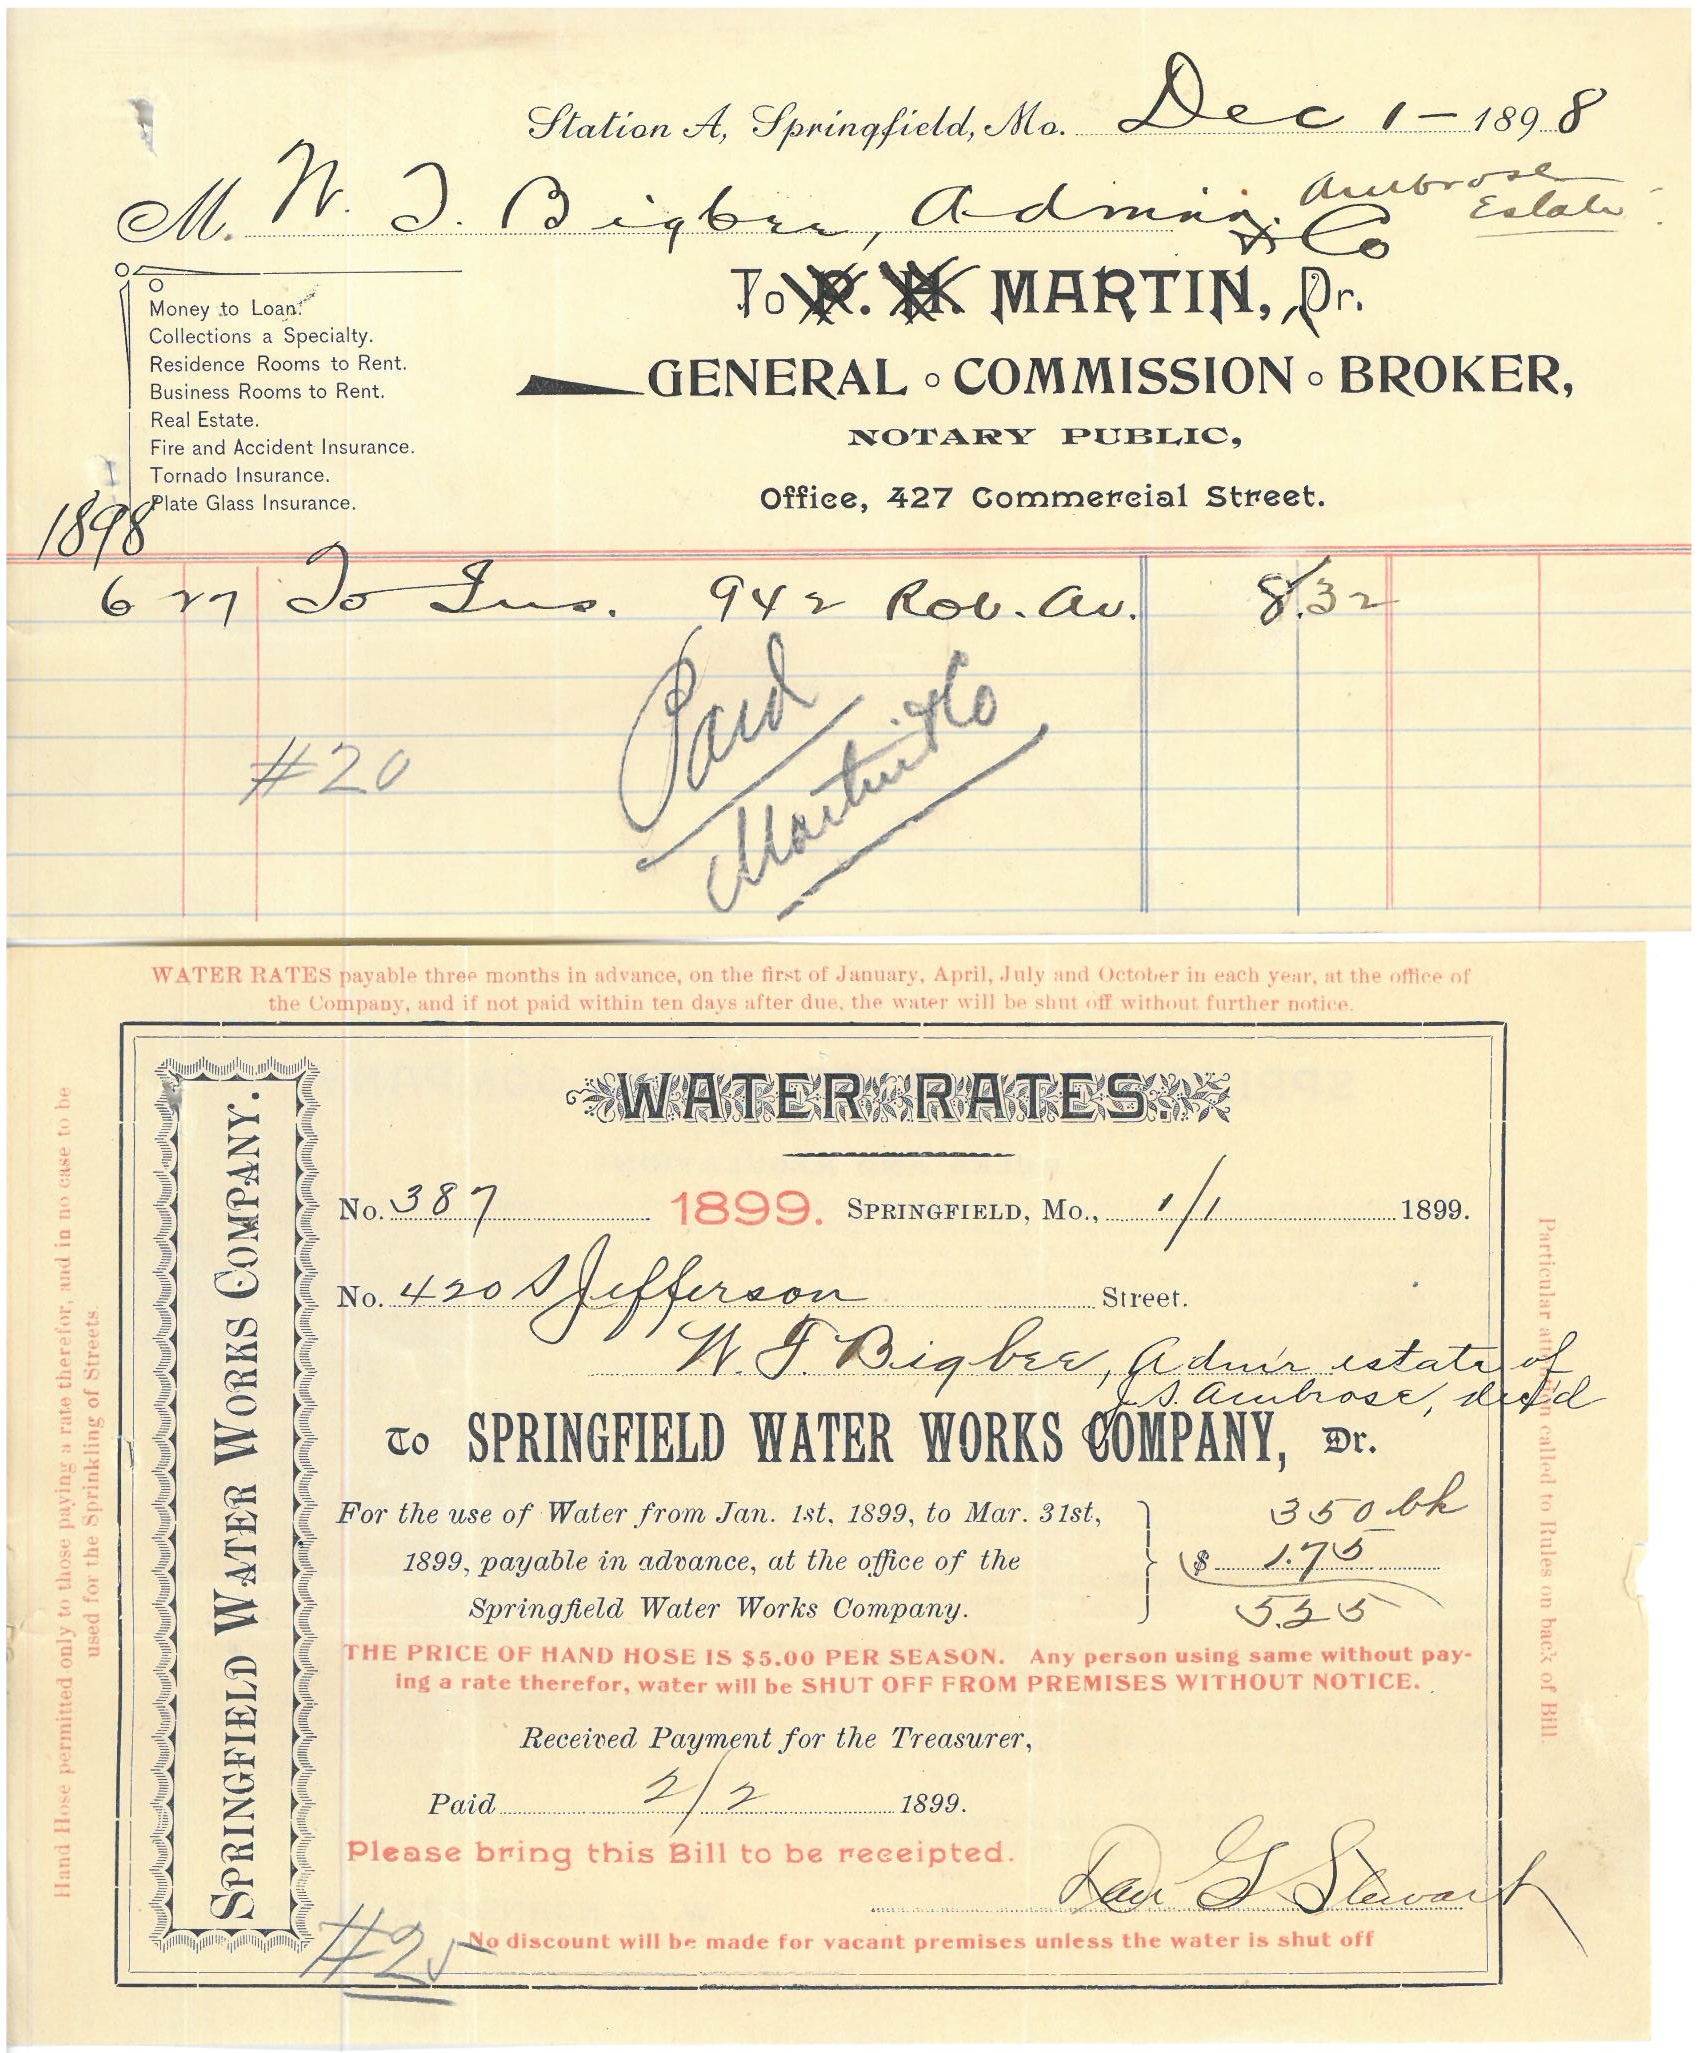 Station A, Springfield, Mo. Dec 1 - 1898
M. W. T. Bigbee, Admin. Ambrose
Estate
& Co
To R. H. MARTIN, Dr.
GENERAL ◦ COMMISSION ◦ BROKER,
NOTARY PUBLIC,
Office, 427 Commercial Street.
Money to Loan.
Collections a Specialty.
Residence Rooms to Rent.
Business Rooms to Rent.
Real Estate.
Fire and Accident Insurance.
Tornado Insurance.
Plate Glass Insurance.
1898
6 27 To Ins. 942 Rob. Av. 8.32
Paid
Martin & Co
#20
WATER RATES payable three months in advance, on the first of January, April, July and October in each year, at the office of
the Company, and if not paid within ten days after due, the water will be shut off without further notice.
Hand Hose permitted only to those paying a rate therefor, and in no case to be
used for the Sprinkling of Streets.
SPRINGFIELD WATER WORKS COMPANY.
WATER RATES.
No. 387 1899. SPRINGFIELD, MO., 1/1 1899.
No. 420 S Jefferson Street.
W. T. Bigbee, Adm'r estate of
J. S. Ambrose, dec'd
To SPRINGFIELD WATER WORKS COMPANY, Dr.
For the use of Water from Jan. 1st, 1899, to Mar. 31st,
1899, payable in advance, at the office of the
Springfield Water Works Company.
350 bk
$ 1.75
5.25
THE PRICE OF HAND HOSE IS $5.00 PER SEASON. Any person using same without pay-
ing a rate therefor, water will be SHUT OFF FROM PREMISES WITHOUT NOTICE.
Received Payment for the Treasurer,
Paid 2/2 1899.
Please bring this Bill to be receipted.
Dan G Stewart
#25
No discount will be made for vacant premises unless the water is shut off
Particular attention called to Rules on back of Bill.